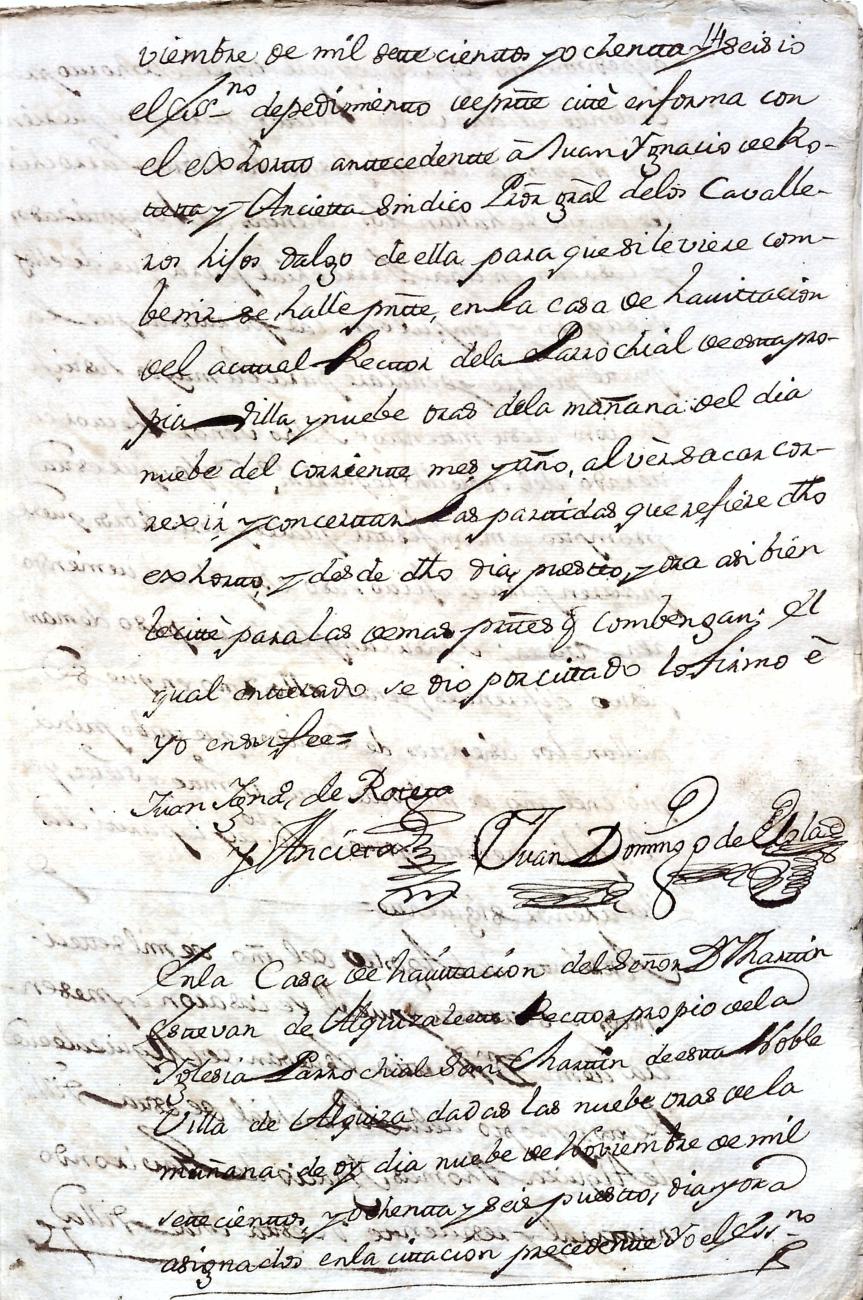 14
viembre de mil settecienttos y ochentta y seis io
el Ess.no de pedimientto de partte citté en forma con
el exhortto anttecedentte á Juan Ygnacio de Ro-
tetta y Ancietta Sindico Prór grál delos Cavalle-
ros hijos dalgo de ella para que si le viere com-
benir se halle pntte, en la casa de havittacion
del acttual Recttor dela Parrochial de estta pro-
pia Villa y nuebe oras dela mañana del dia
nuebe del corrientte mes y año, al vèr sacar cor-
rexir y concerttar las parttidas que refiere dho
exhortto, y desde dho dia, puestto, y ora asi bien
le citté para las demas prttes q combengan; el
qual entterado se dio por cittado lo firmo è
yo en su fee=
Juan Igna.o de Roteta
y Ancieta Juan Domingo de
En la Casa de havittacion del Señor Dn Marttin
Esttevan de Alquizalette Recttor propio de la
Yglesia Parrochial San Marttin de estta Noble
Villa de Alquiza dadas las nuebe oras de la
mañana de oy dia nuebe de Noviembre de mil
settecienttos y ochentta y seis puestto, dia y ora
asignados en la cittacion precedentte Yo el Ess.no